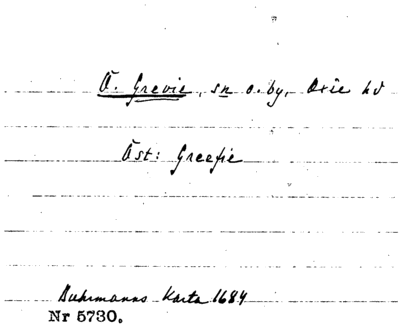 Ö. Grevie, sn o. by, Oxie hd
Öst: Greefie
Buhrmanns Karta 1684
Nr 5730.